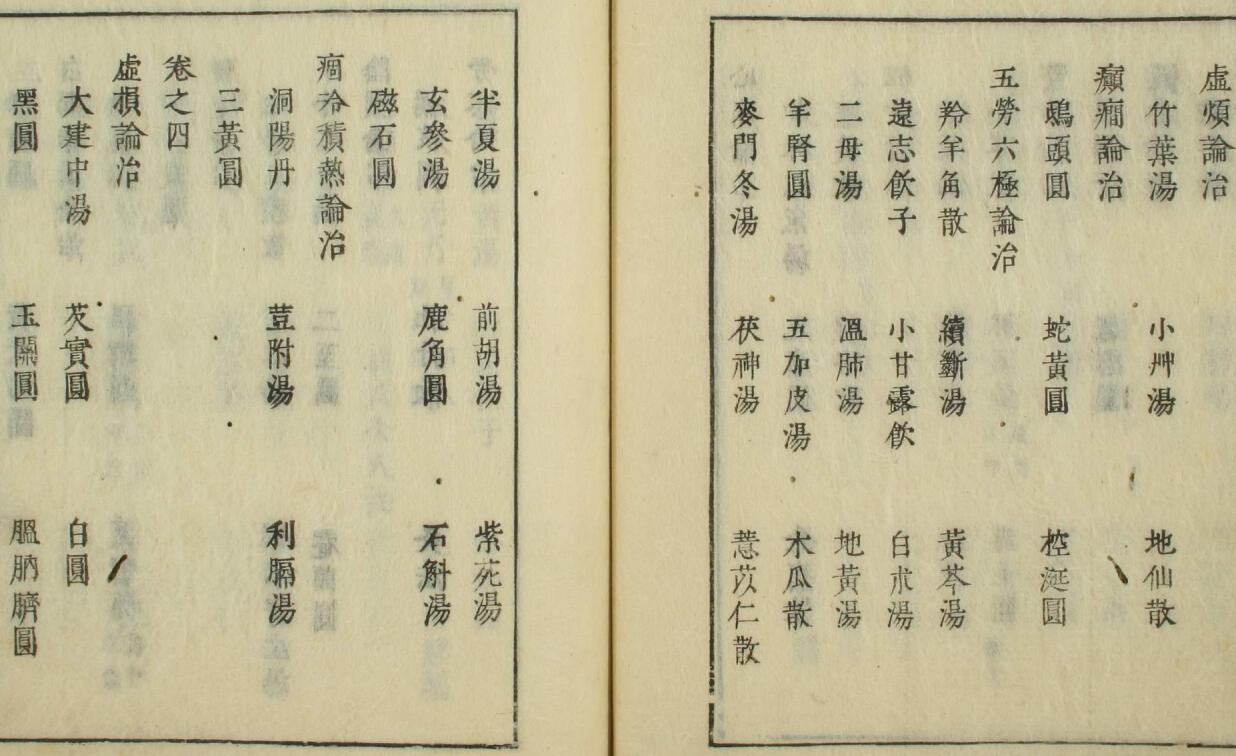 虛煩論治
竹葉湯 小艸湯 地仙散
癲癇論治
鴟頭圓 蛇黃圓 控涎圓
五勞六極論治
羚羊角散 續斷湯 黃芩湯
遠志飲子 小甘露飲 白朮湯
二母湯 溫肺湯 地黃湯
羊腎圓 五加皮湯 木瓜散
麥門冬湯 茯神湯 薏苡仁散
半夏湯 前胡湯 紫菀湯
玄參湯 鹿角圓 石斛湯
磁石圓
痼冷積熱論治
洞陽丹 荳附湯 利膈湯
三黃圓
卷之四
虛損論治
大建中湯 芡實圓 白圓
黑圓 玉關圓 膃肭臍圓